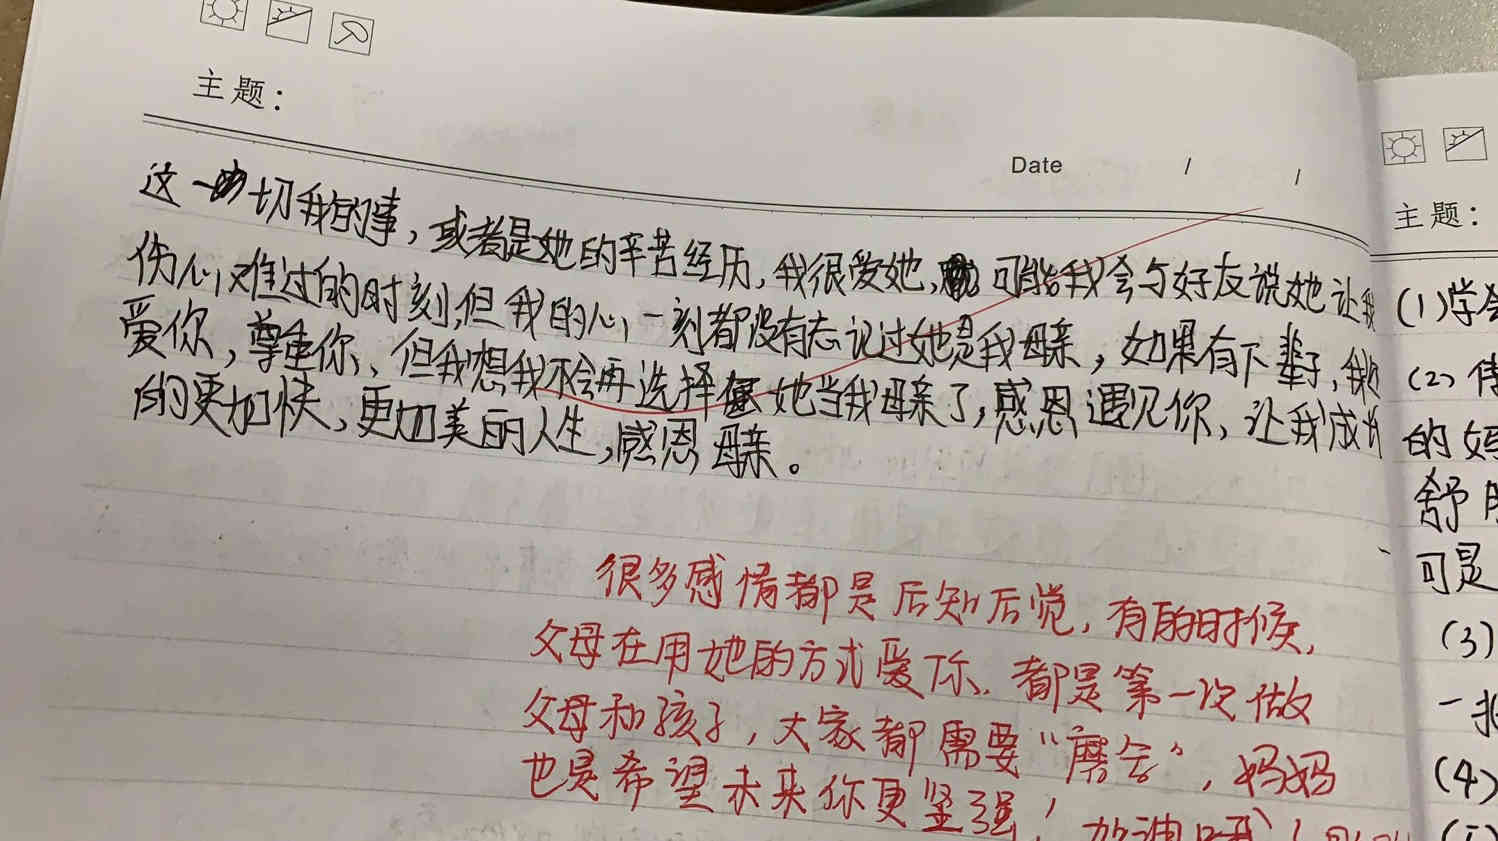 主题：
Date / /
这一切我的事，或者是她的辛苦经历，我很爱她，可能我会与好友说她让我
伤心难过的时刻，但我的心一刻都没有忘记过她是我母亲，如果有下辈子，我
爱你，尊重你、但我想我不会再选择她当我母亲了，感恩遇见你，让我成长
的更加快，更加美的人生，感恩母亲。
很多感情都是后知后觉，有的时候，
父母在用她的方式爱你，都是第一次做
父母和孩子，大家都需要“磨合”，妈妈
也是希望未来你更坚强！加油哦！
主题：
(1)学会
(2)
的妈
舒服
可是
(3)
一
(4)